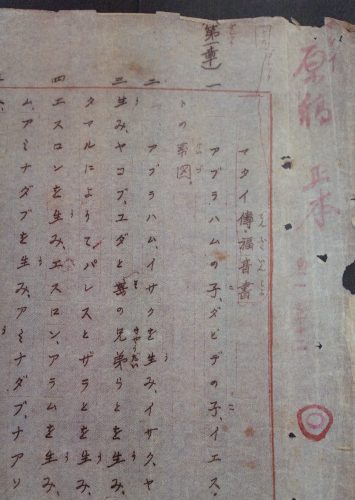 原稿 正本
マタイ傳福音書
第一章
一 アブラハムの子、ダビデの子、イエス・
トの系図。
二 アブラハム、イサクを生み、イサク、ヤ
三 生み、ヤコブ、ユダと其の兄弟らとを生み、
タマルによりてパレスとザラとを生み、
四 エスロンを生み、エスロン、アラムを生み、
ム、アミナダブを生み、アミナダブ、ナアソ